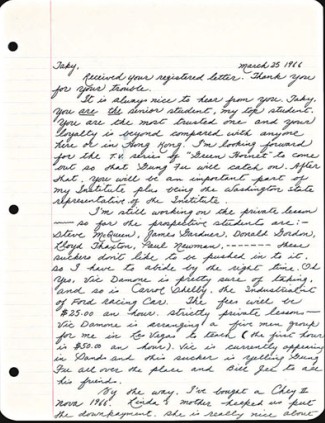 Taky, March 25 1966
Received your registered letter. Thank you
for your trouble.
It is always nice to hear from you Taky.
You are the senior student, my top student.
You are the most trusted one and your
loyalty is beyond compared with anyone
here or in Hong Kong. I'm looking forward
for the T.V. series of "Green Hornet" to come
out so that Gung Fu will catch on. After
that, you will be an important part of
my Institute plus being the Washington state
representative of the Institute.
I'm still working on the private lesson
— so far the prospective students are :-
Steve McQueen, James Gardner, Donald Gordon,
Lloyd Thaxton, Paul Newman, ------- these
suckers don't like to be pushed in to it.
so I have to abide by the right time. Oh
Yes, Vic Damone is pretty sure of taking,
and so is Carrol Shelby, the Industrialist
of Ford racing Car. The fees will be
$25.00 an hour. strictly private lessons —
Vic Damone is arranging a five men group
for me in Las Vegas to teach (the first hours
is $50.00 an hour). Vic is currently appearing
in Sands and this sucker is yelling Gung
Fu all over the place and Bill Lee to all
his friends.
By the way, I've bought a Chevy II
Nova 1966. Linda's mother helped us put
the downpayment. She is really nice about